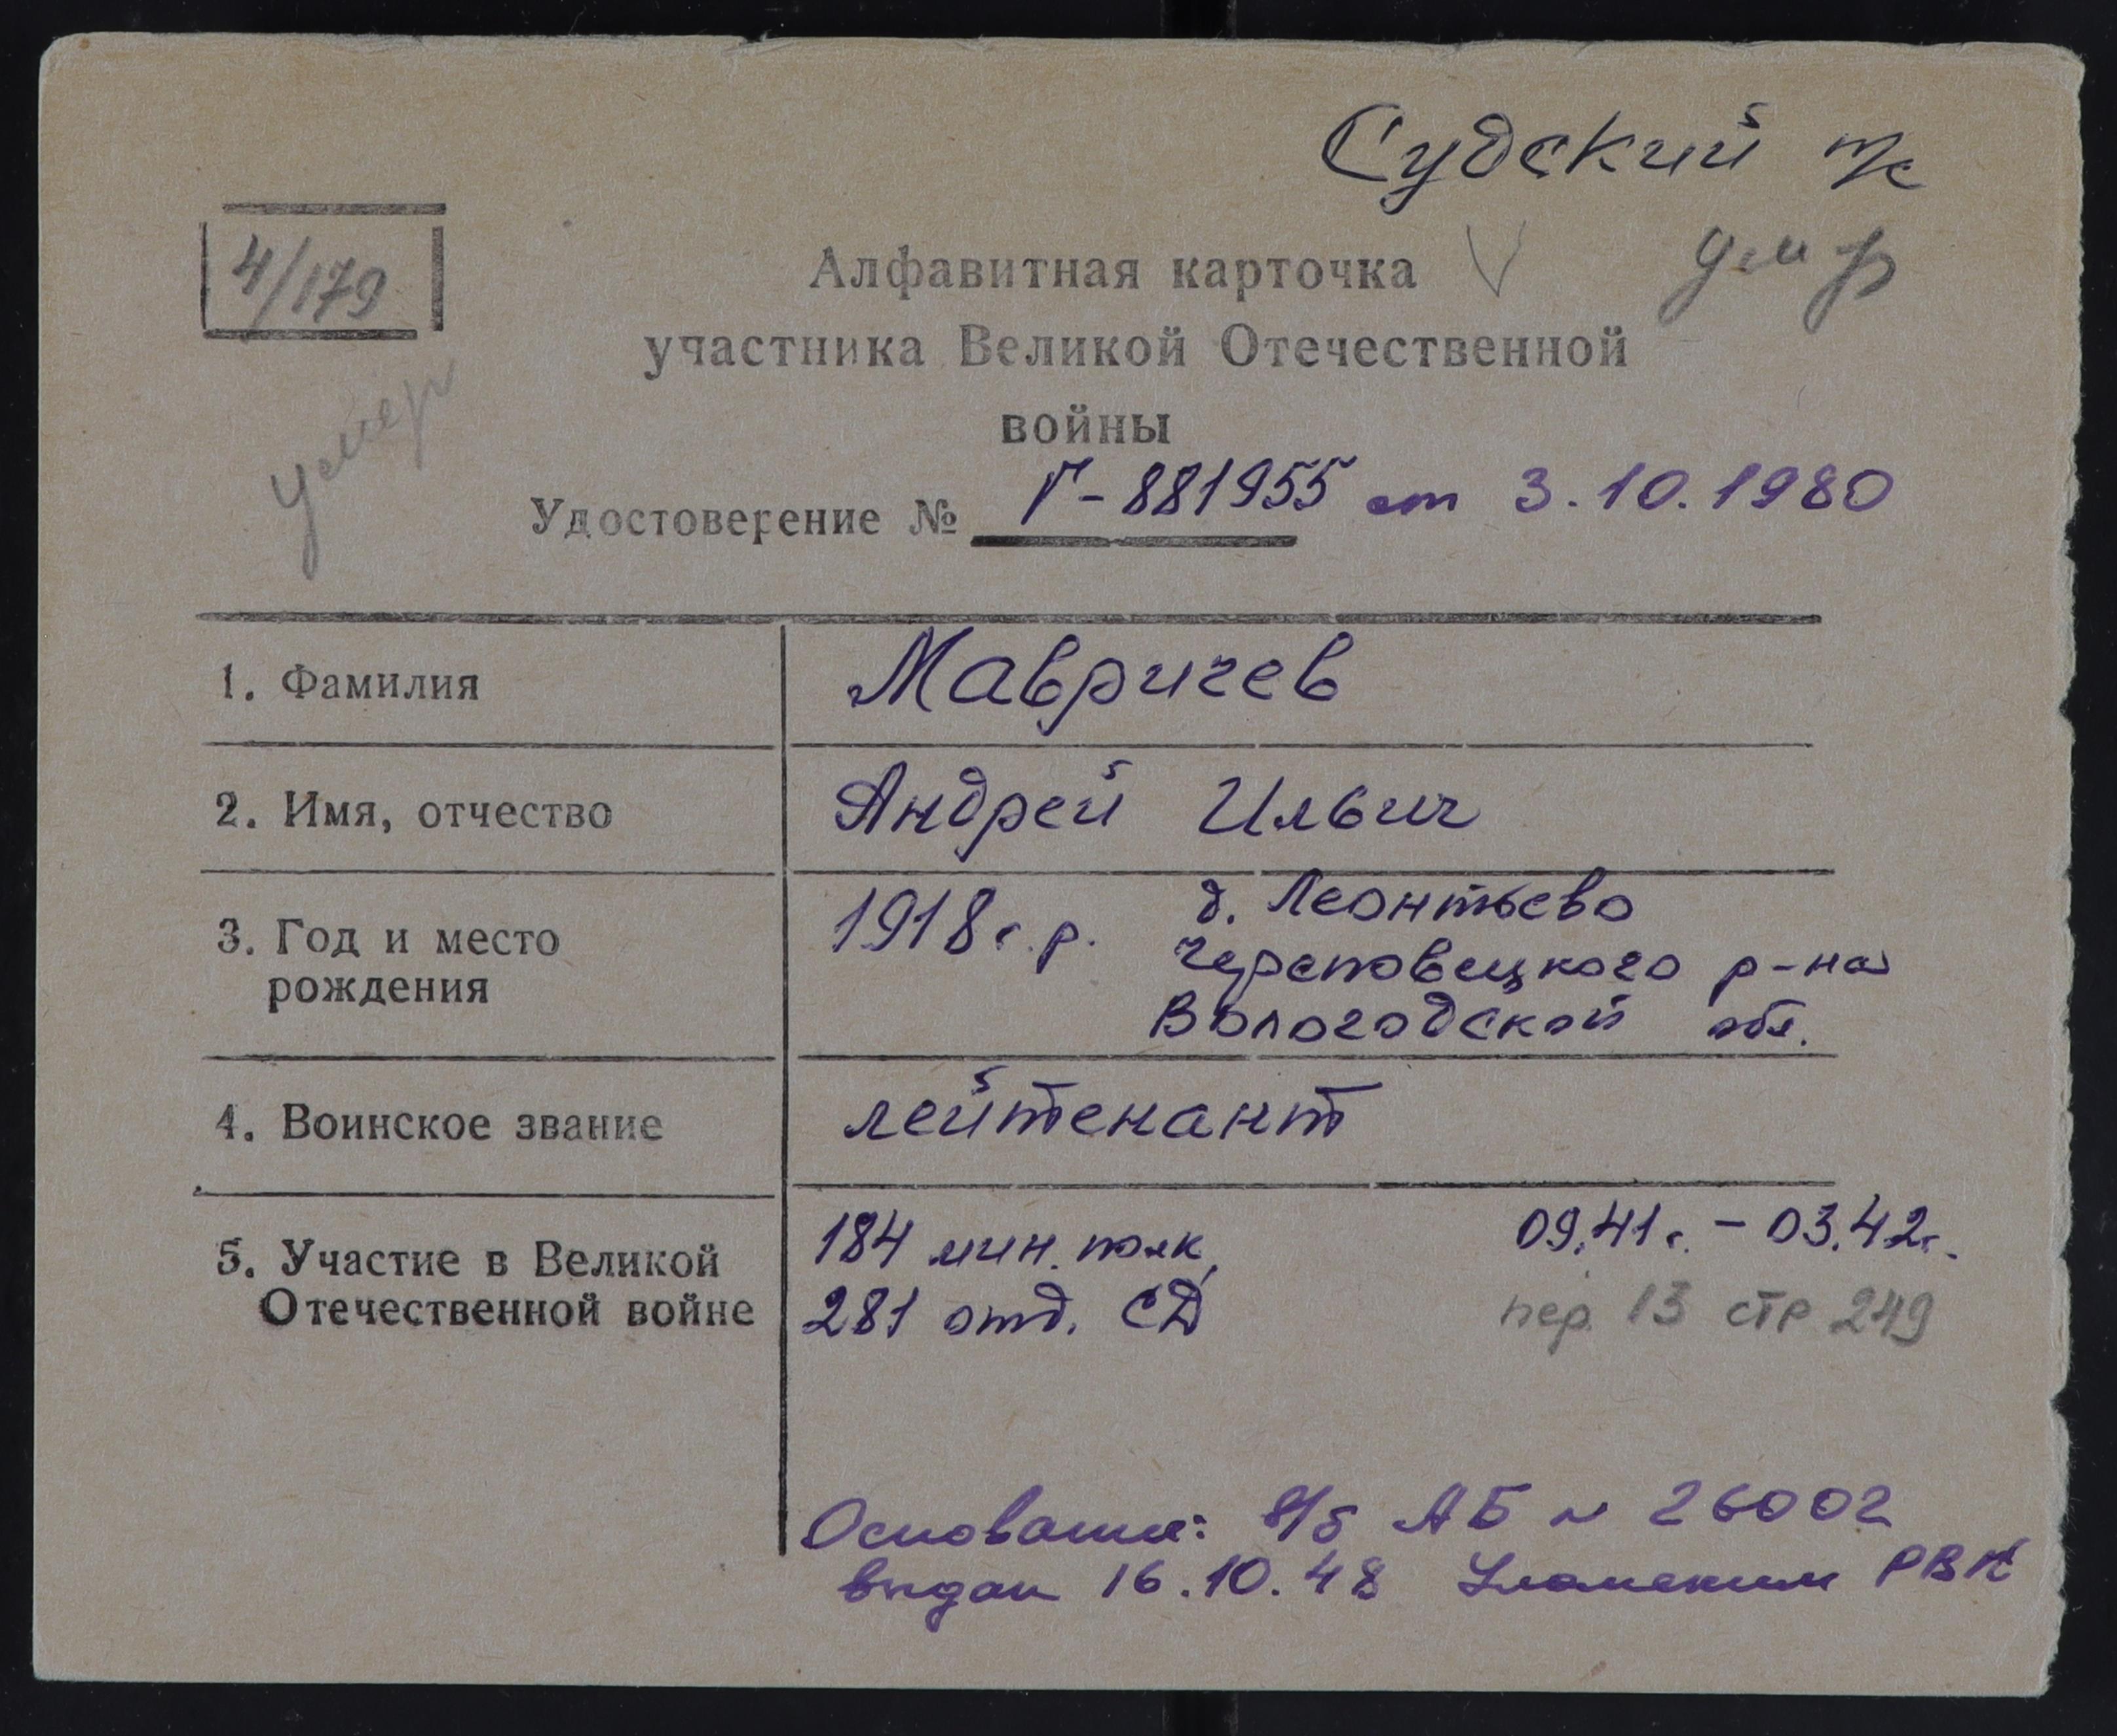 Судский п/с
4/179
Алфавитная карточка V умр
участника Великой Отечественной
войны
умер
Удостоверение № Г-881955 от 3.10.1980
1. Фамилия Мавричев
2. Имя, отчество Андрей Ильич
3. Год и место рождения 1918 г.р. д. Леонтьево
Череповецкого р-на
Вологодской обл.
4. Воинское звание лейтенант
5. Участие в Великой Отечественной войне 184 мин. полк, 09.41 г. – 03.42 г.
281 отд. СД пер. 13 стр 249
Основание: в/б АБ № 26002
выдан 16.10.48 Уломским РВК